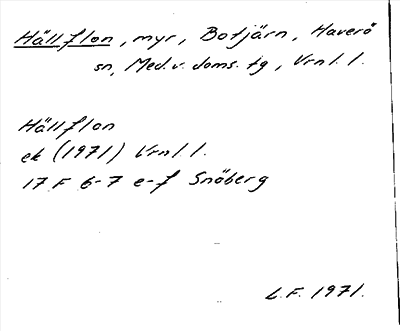 Hällflon, myr, Botjärn, Haverö
sn, Med.v. doms. tg, Vrnl. l.
Hällflon
ek (1971) Vrnl. l.
17 F 6-7 e-f Snöberg
L.F. 1971.